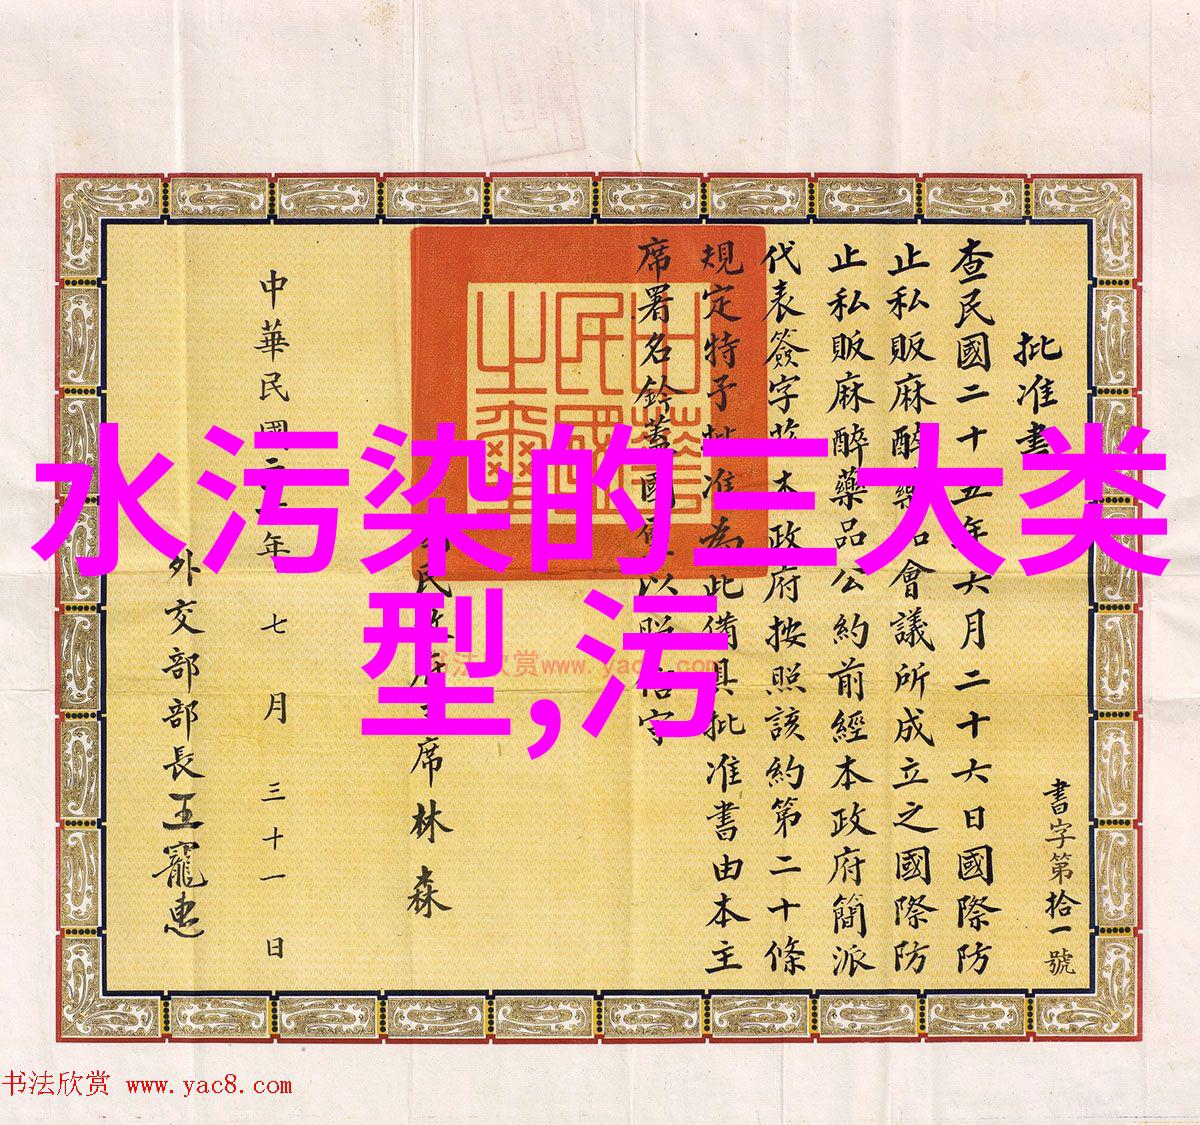 水污染的三大类
型,污
批准書
書字第拾一號
查民國二十五年六月二十六日國際防
止私販麻醉藥品會議所成立之國際防
止私販麻醉藥品公約前經本政府簡派
代表簽字茲本政府按照該約第二十條
規定特予批准為此備具批准書由本主
席署名鈐蓋國璽以昭信守
中華民國之璽
民政府主席林森
中華民國二十六年七月三十一日
外交部部長王寵惠
书法欣赏 www.yac8.com
书法欣赏 www.yac8.com